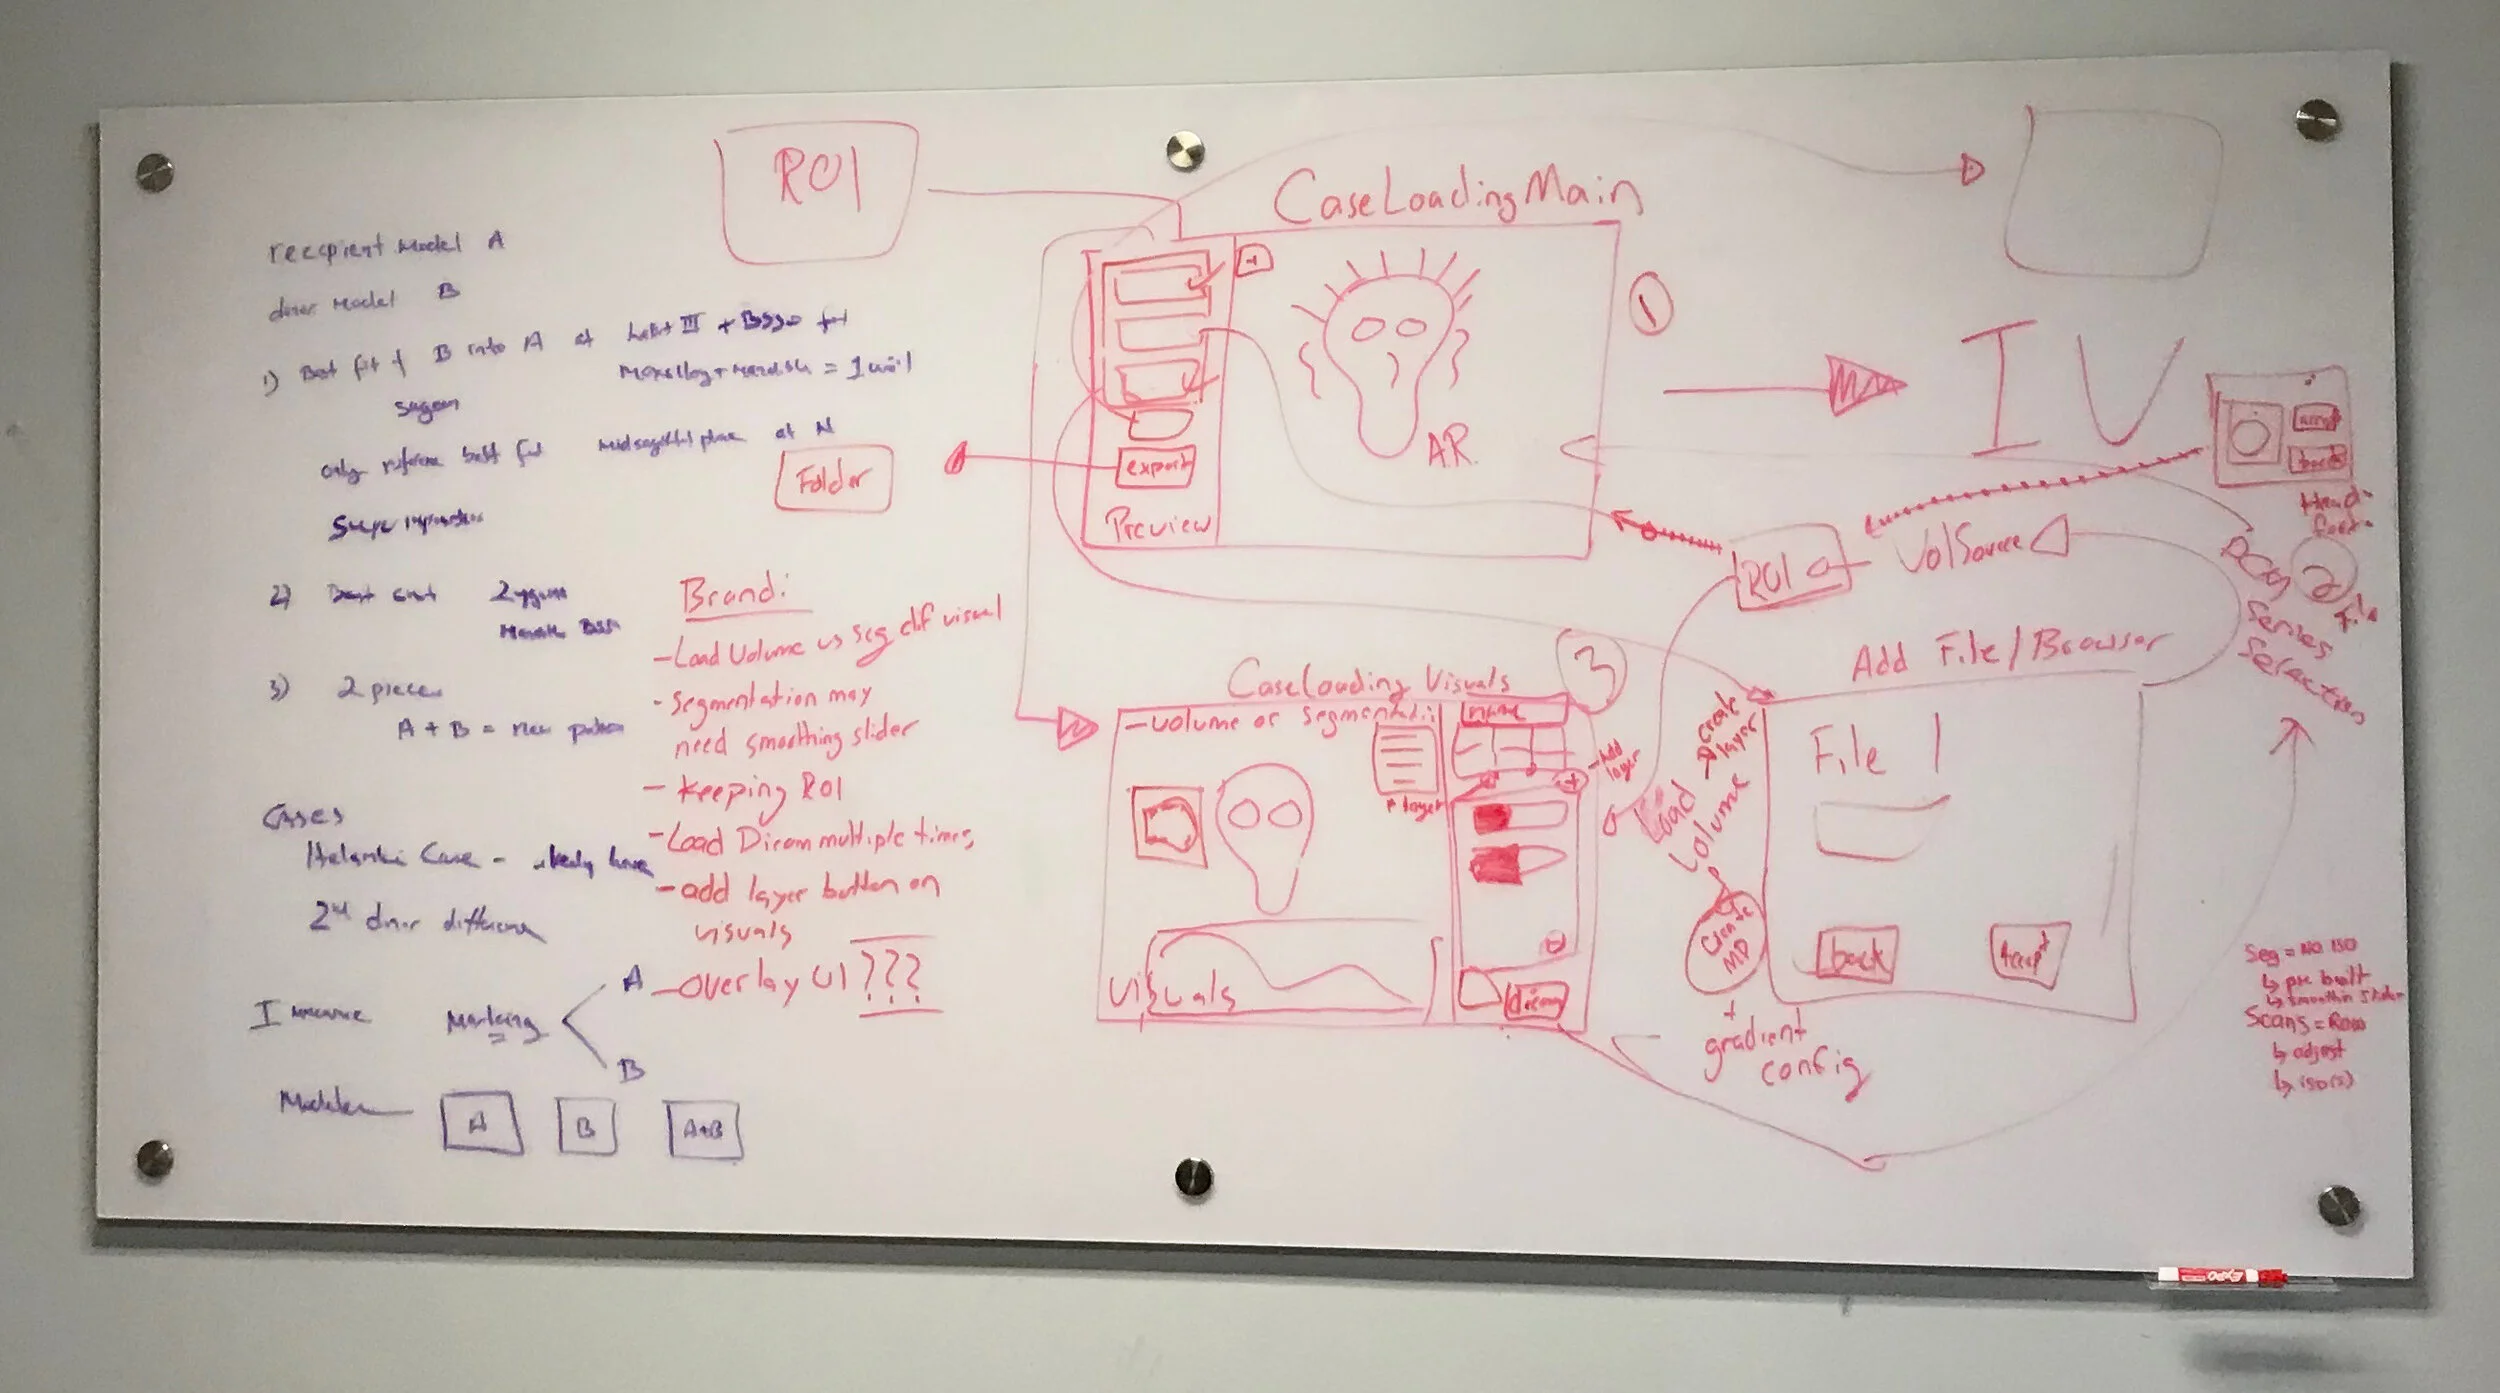 recipient Model A
donor Model B
1) Best fit of B into A at Lefort III + BSSO for
Maxillary + Mandible = 1 unit
only reference best fit Midsagittal plane at N
2) Best
3) 2 pieces
A + B = new
Cases
Case -
2nd donor difference
Marking
A
B
A
B
A+B
ROI
Folder
Brand:
- Load Volume vs seg dif visual
- segmentation may
need smoothing slider
- keeping ROI
- Load Dicom multiple times,
- add layer button on
visuals
- overlay UI ???
CaseLoadingMain
+
export
Preview
AR
1
IV
accept
back
Head-
feet-
ROI
VolSource
2
File
Series
Selection
3
CaseLoading Visuals
- volume or segmentati
name
- Add
layer
+
# layer
Visuals
dicom
Load
Volume
create
layer
MP
+
gradient
config
Add File/Browser
File 1
back
Accept
Seg = NO ISO
↳ pre built
↳ smoothin slider
Scans = Raw
↳ adjust
↳ iso(s)
EXPO